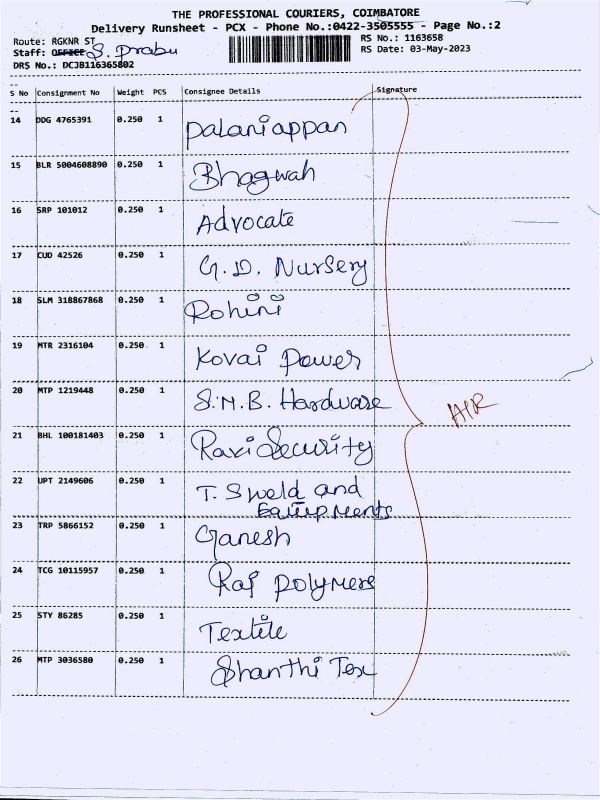 THE PROFESSIONAL COURIERS, COIMBATORE
Delivery Runsheet - PCX - Phone No.:0422-3505555 - Page No.:2
Route: RGKNR ST
RS No.: 1163658
Staff: OFFICE S. Prabu
RS Date: 03-May-2023
DRS No.: DCJB116365802
S No Consignment No Weight PCS Consignee Details Signature
14 DDG 4765391 0.250 1 Palaniappan
15 BLR 5004608890 0.250 1 Bhagwah
16 SRP 101012 0.250 1 Advocate
17 CUD 42526 0.250 1 G.D. Nursery
18 SLM 318867868 0.250 1 Rohini
19 MTR 2316104 0.250 1 Kovai Power
20 MTP 1219448 0.250 1 S.M.B. Hardware
21 BHL 100181403 0.250 1 Ravi Security
22 UPT 2149606 0.250 1 T. S weld and
Equipments
23 TRP 5866152 0.250 1 Ganesh
24 TCG 10115957 0.250 1 Raj Polymers
25 STY 86285 0.250 1 Textile
26 MTP 3036580 0.250 1 Shanthi Tex